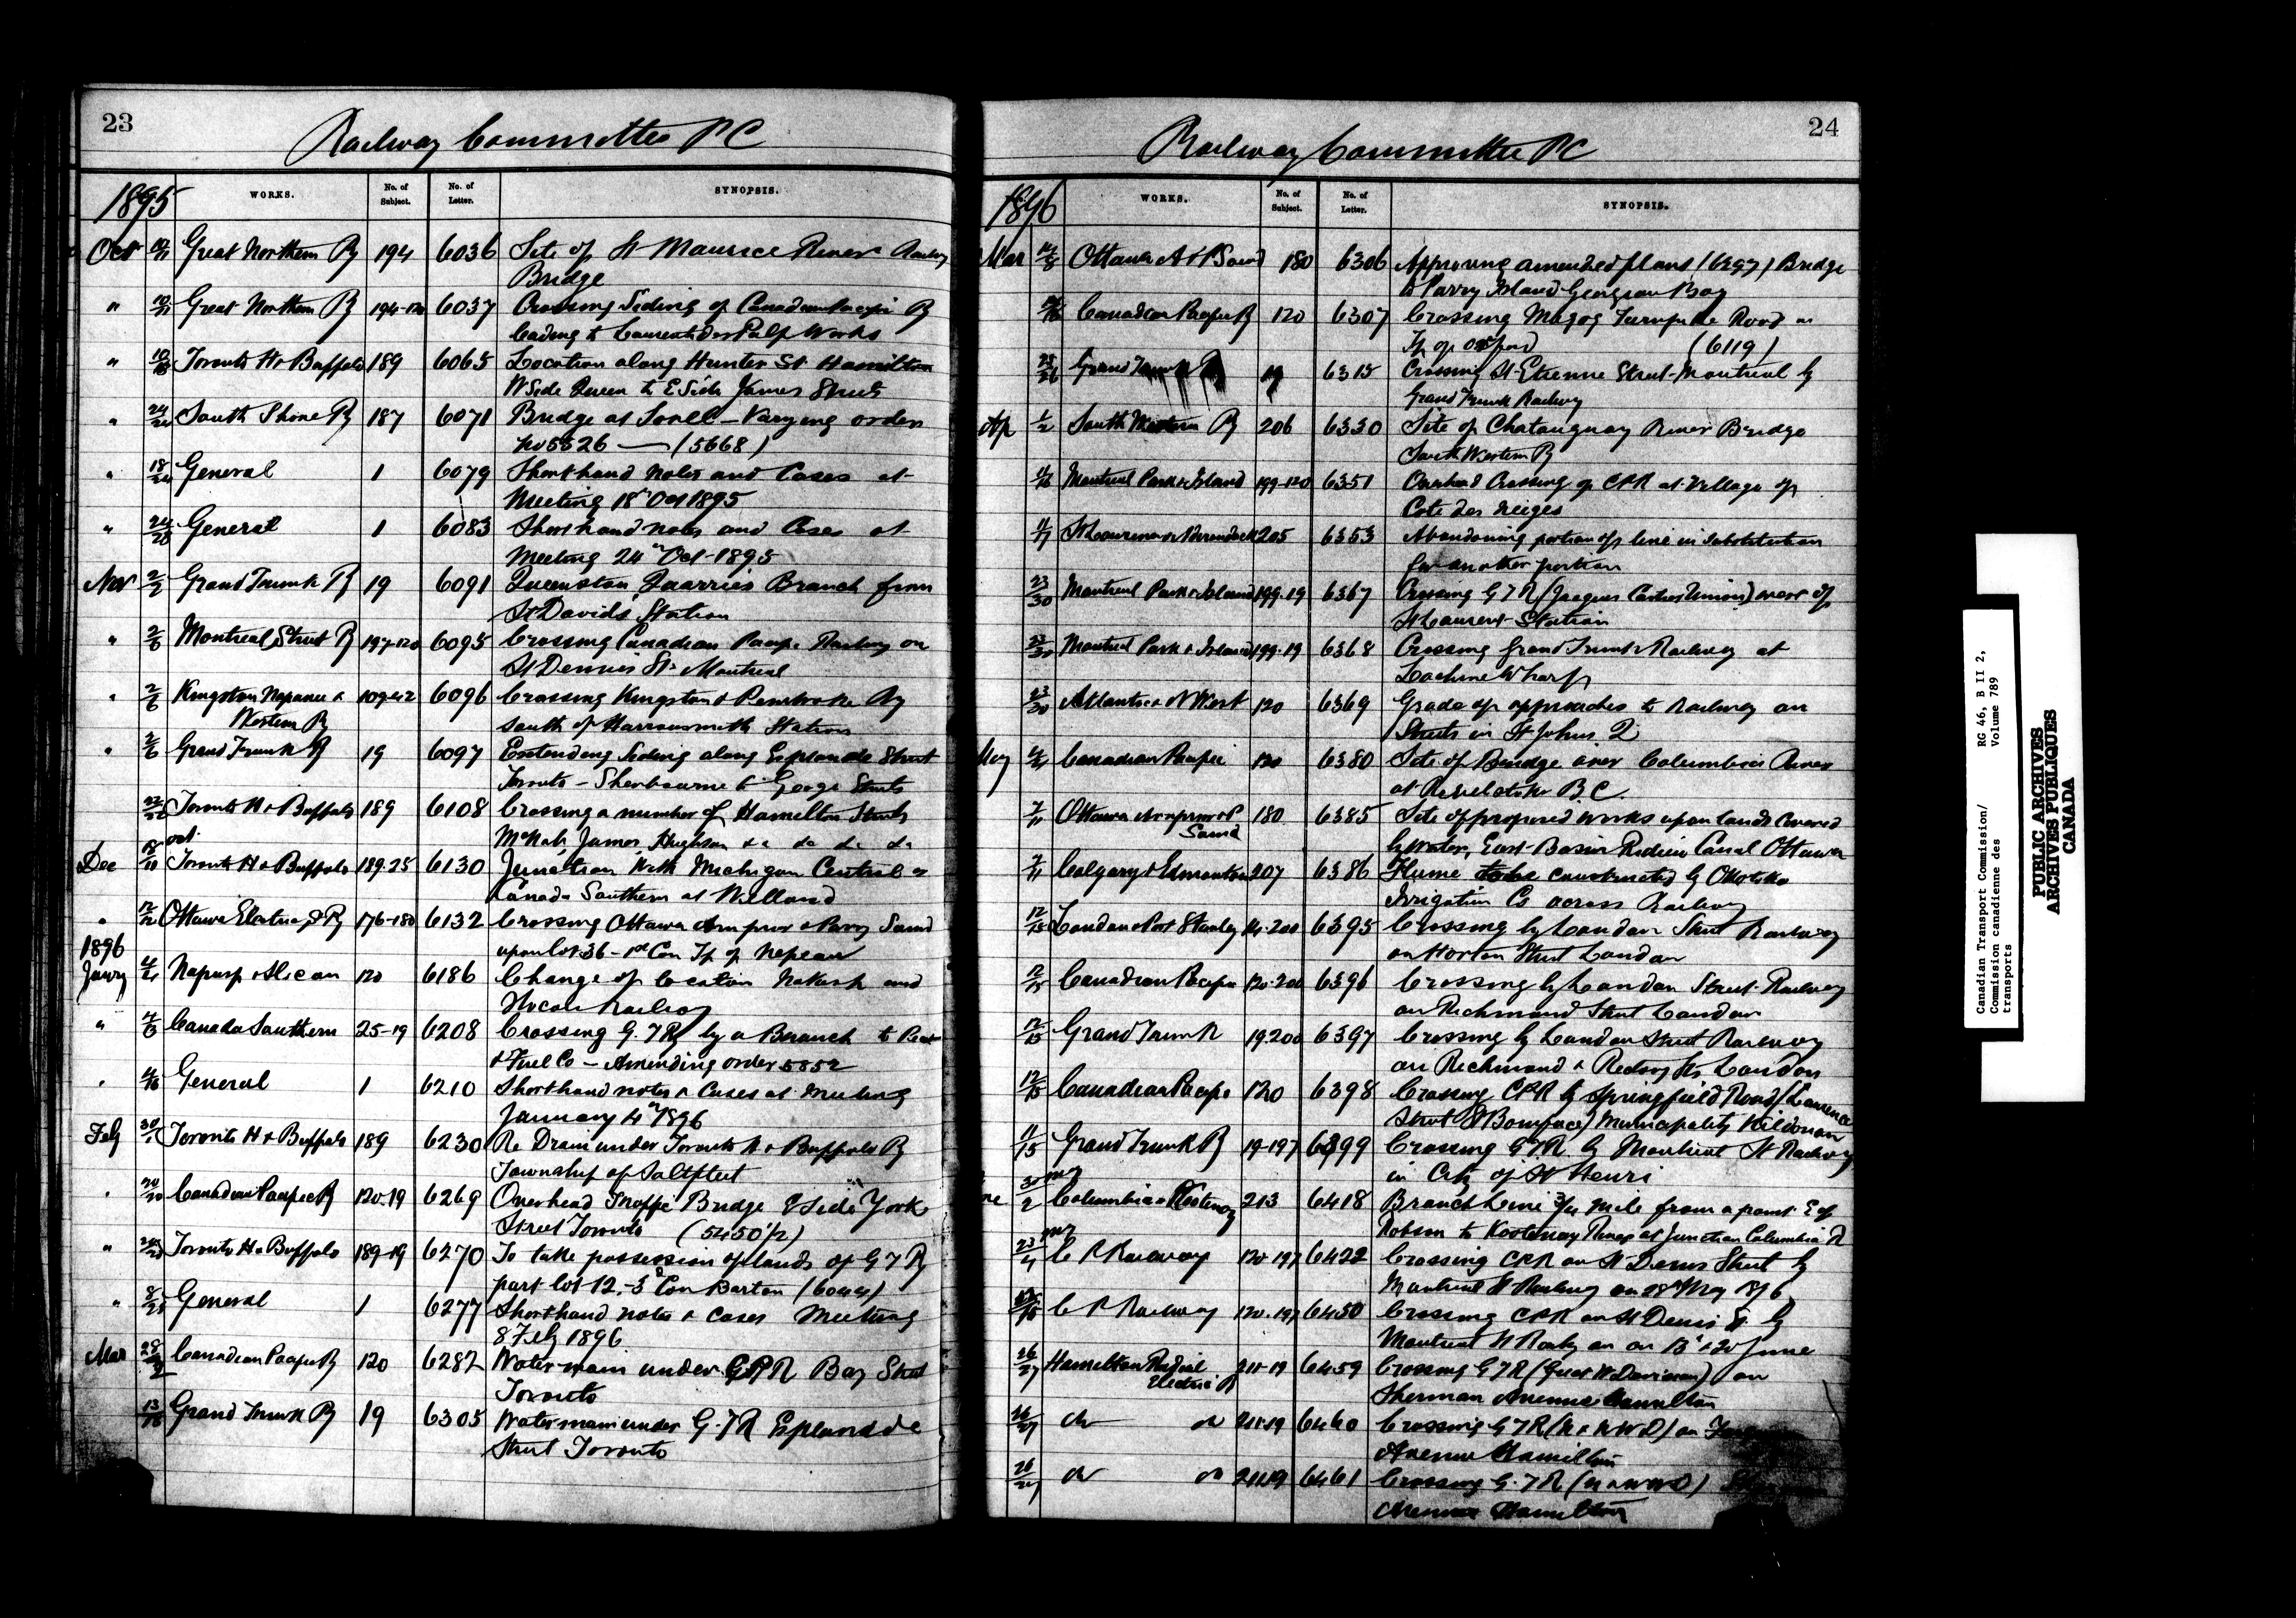 23
Railway Committee PC
1895 WORKS. No. of Subject. No. of Letter. SYNOPSIS.
Oct Great Northern Ry 194 6036 Site of St Maurice River Railway
Bridge
" Great Northern Ry 194-120 6037 Crossing Siding of Canadian Pacific Ry
leading to Laurentides Pulp Works
" Toronto H & Buffalo 189 6065 Location along Hunter St Hamilton
W Side Queen to E Side James Streets
" South Shore Ry 187 6071 Bridge at Sorel - Varying orders
No 5526 — (5668)
" 18/24 General 1 6079 Shorthand Notes and Cases at
Meeting 18th Oct 1895
" 24/28 General 1 6083 Shorthand notes and Cases at
Meeting 24th Oct 1895
Nov 2/2 Grand Trunk Ry 19 6091 Queenston Quarries Branch from
St Davids Station
" 2/6 Montreal Street Ry 197-120 6095 Crossing Canadian Pacific Railway on
St Dennis St Montreal
" 2/6 Kingston Napanee & 109-42 6096 Crossing Kingston & Pembroke Ry
Western Ry south of Harrowsmith Station
" 2/6 Grand Trunk Ry 19 6097 Extending Siding along Esplanade Street
Toronto - Sherbourne to George Streets
22/22 Toronto H & Buffalo 189 6108 Crossing a number of Hamilton Streets
McNab, James, Hughson &c &c &c &c
Oct
Dec Toronto H & Buffalo 189-25 6130 Junction With Michigan Central &
Canada Southern at Welland
" Ottawa Electric St Ry 176-180 6132 Crossing Ottawa Arnprior & Parry Sound
upon lot 36 - 1st Con Tp of Nepean
1896
Jany Nakusp & Slocan 120 6186 Change of location Nakusp and
Slocan Railway
" Canada Southern 25-19 6208 Crossing G.T.R. by a Branch to
& Fuel Co - Amending order 5852
" General 1 6210 Shorthand notes & Cases at Meeting
January 4th 1896
Feby 30/1 Toronto H & Buffalo 189 6230 Re Drain under Toronto H & Buffalo Ry
Township of Saltfleet
" Canadian Pacific Ry 120-19 6269 Overhead Traffic Bridge E Side York
Street Toronto (5450 1/2)
" Toronto H & Buffalo 189-19 6270 To take possession of lands of G T Ry
part lot 12-3d Con Barton (6044)
" 8/25 General 1 6277 Shorthand notes & Cases Meeting
8 Feby 1896
Mar Canadian Pacific Ry 120 6287 Water main under CPR Bay Street
Toronto
13/18 Grand Trunk Ry 19 6305 Water main under G.T.R Esplanade
Street Toronto
24
Railway Committee PC
1896 WORKS. No. of Subject. No. of Letter. SYNOPSIS.
Mar Ottawa A & P Sound 180 6306 Approving amended plans (6297) Bridge
to Parry Island Georgian Bay
Canadian Pacific Ry 120 6307 Crossing Magog Turnpike Road in
Tp of Orford (6119)
Grand Trunk R 19 6315 Crossing St Etienne Street Montreal by
Grand Trunk Railway
Ap 1/2 South Western Ry 206 6330 Site of Chataugnay River Bridge
South Western Ry
Montreal Park & Island 199-120 6351 Overhead Crossing of CPR at Village of
Cote des Neiges
St Lawrence & Adirondack 205 6353 Abandoning portion of line in substitution
for another portion
23/30 Montreal Park & Island 199-19 6367 Crossing G T R (Jacques Cartier Union) west of
St Laurent Station
23/30 Montreal Park & Island 199-19 6368 Crossing Grand Trunk Railway at
Lachine Wharf
23/30 Atlantic & N West 120 6369 Grade of approaches to Railway on
Streets in St Johns Q
May Canadian Pacific 120 6380 Site of Bridge over Columbia River
at Revelstoke B C.
7/11 Ottawa Arnprior & P 180 6385 Site of proposed works upon lands covered
Sound by water, East Basin Rideau Canal Ottawa
7/11 Calgary & Edmonton 207 6386 Flume to be constructed by Okotoks
Irrigation Co across Railway
12/15 London & Port Stanley 14-200 6395 Crossing by London Street Railway
on Horton Street London
12/15 Canadian Pacific 120-200 6396 Crossing by London Street Railway
on Richmond Street London
12/15 Grand Trunk 19-200 6397 Crossing by London Street Railway
on Richmond & Rectory Sts London
12/15 Canadian Pacific 120 6398 Crossing CPR by Springfield Road (Lawrence
Street St Boniface) Municipality Kildonan
11/15 Grand Trunk R 19-197 6399 Crossing G.T.R. by Montreal St Railway
in City of St Henri
May
Columbia & Kootenay 213 6418 Branch Line 3/4 mile from a point E of
Robson to Kootenay River at Junction Columbia R
May
23/4 C P Railway 120-197 6422 Crossing CPR on St Denis Street by
Montreal St Railway on 28th May 896
C P Railway 120-197 6450 Crossing CPR on St Denis St by
Montreal St Railway on 13th & 20 June
26/27 Hamilton Radial 211-19 6459 Crossing G T R (Great W Division) on
Electric R Sherman Avenue Hamilton
26/27 do do 211-19 6460 Crossing G T R (N & N W D) on
Avenue Hamilton
26/27 do do 211-19 6461 Crossing G.T.R (N & N W D)
Avenue Hamilton
Canadian Transport Commission/ RG 46, B II 2,
Commission canadienne des Volume 789
transports
PUBLIC ARCHIVES
ARCHIVES PUBLIQUES
CANADA